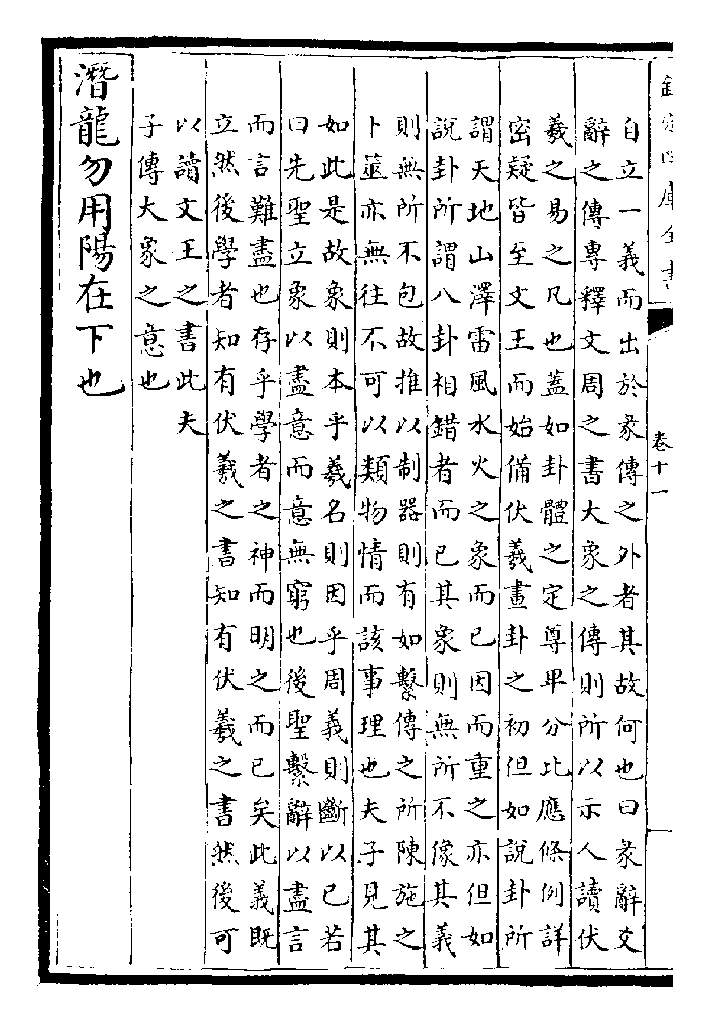 欽定四庫全書
卷十一
自立一義而出於彖傳之外者其故何也曰彖辭爻
辭之傳專釋文周之書大象之傳則所以示人讀伏
羲之易之凡也蓋如卦體之定尊卑分比應條例詳
密疑皆至文王而始備伏羲畫卦之初但如說卦所
謂天地山澤雷風水火之象而已因而重之亦但如
說卦所謂八卦相錯者而已其象則無所不像其義
則無所不包故推以制器則有如繫傳之所陳施之
卜筮亦無往不可以類物情而該事理也夫子見其
如此是故象則本乎羲名則因乎周義則斷以已若
曰先聖立象以盡意而意無窮也後聖繫辭以盡言
而言難盡也存乎學者之神而明之而已矣此義既
立然後學者知有伏羲之書知有伏羲之書然後可
以讀文王之書此夫
子傳大象之意也
潛龍勿用陽在下也